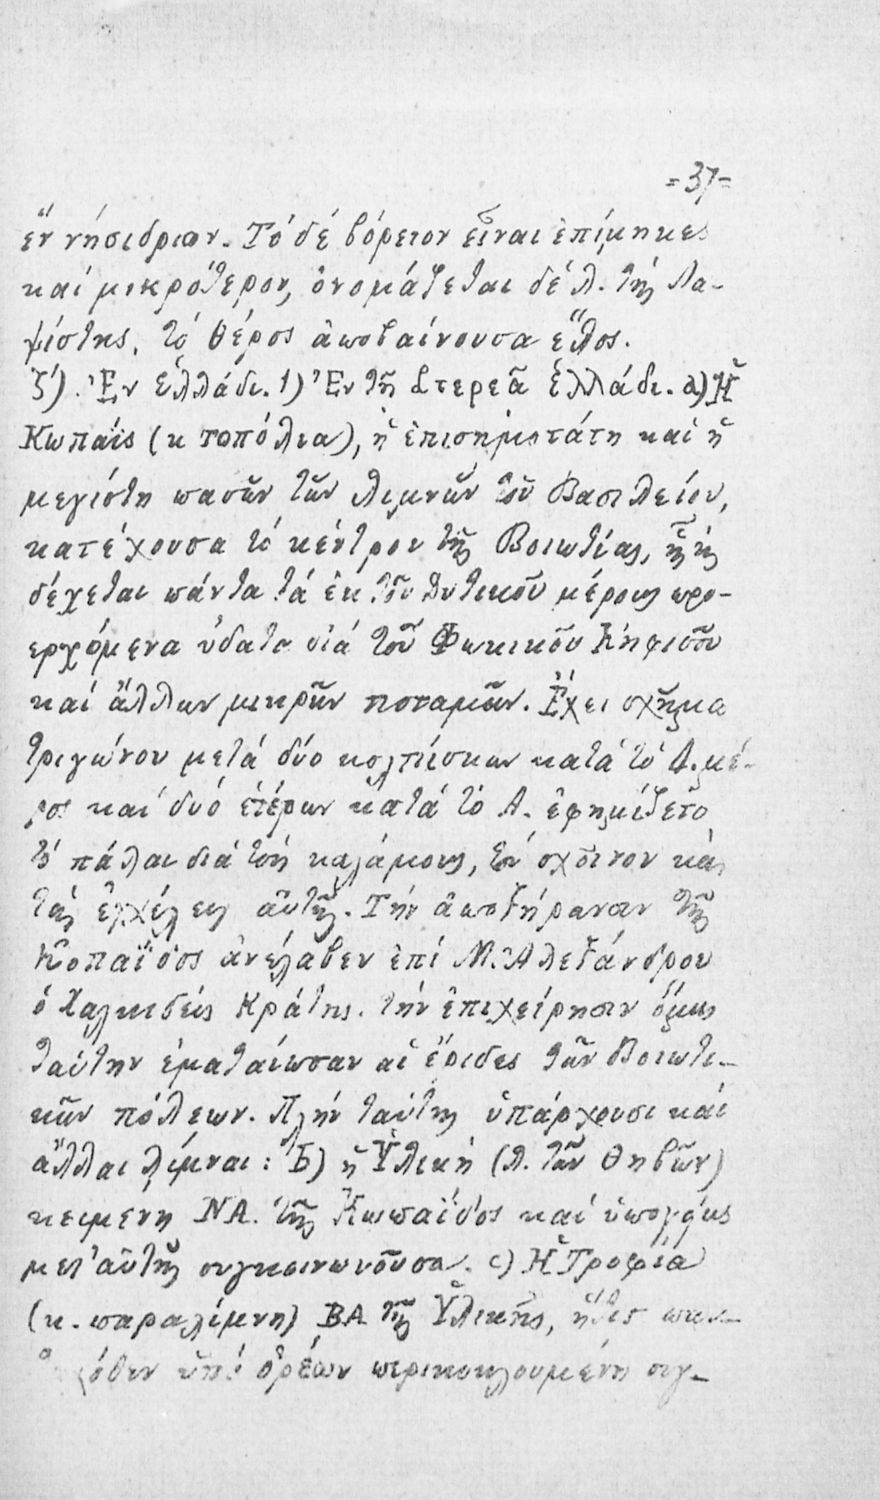 =37=
ἕν νήσιδριον. Τό δέ βόρειον εἶναι ἐπίμηκες
καί μικρότερον, ὀνομάζεται δέ λ. τῆς Λα-
ψίστης, τό θέρος ἀποβαίνουσα ἕλος.
ζ'). Ἐν Ἑλλάδι. 1) Ἐν τῇ Στερεᾶ Ἑλλάδι. a) Ἡ
Κωπαΐς (κ τοπόλια), ἡ ἐπισημοτάτη καί ἡ
μεγίστη πασῶν τῶν λιμνῶν τοῦ Βασιλείου,
κατέχουσα τό κέντρον τῆς Βοιωτίας, ἥτις
δέχεται πάντα τά ἐκ τοῦ Δυτικοῦ μέρους προ-
ερχόμενα ὕδατα διά τοῦ Φωκικοῦ Κηφισοῦ
καί ἄλλων μικρῶν ποταμῶν. Ἔχει σχῆμα
τριγώνου μετά δύο κολπίσκων κατά τό Δ. μέ-
ρος καί δυό ἑτέρων κατά τό Α. ἐφημίζετο
τό πάλαι διά τούς καλάμους, τόν σχοῖνον καί
τάς ἐγχέλεις αὐτῆς. Τήν ἀποξήρανσιν τῆς
Κοπαΐδος ἀνέλαβεν ἐπί Μ. Ἀλεξάνδρου
ὁ Χαλκιδεύς Κράτης. τήν ἐπιχείρησιν ὅμως
ταύτην ἐματαίωσαν αἱ ἔριδες τῶν Βοιωτι-
κῶν πόλεων. Πλήν ταύτης ὑπάρχουσι καί
ἄλλαι λίμναι: b) ἡ Ὑλική (λ. τῶν Θηβῶν)
κειμένη ΝΑ. τῆς Κωπαΐδος καί ὑπογείως
μετ' αὐτῆς συγκοινωνοῦσα. c) Ἡ Τροφία
(κ. παραλίμνη) ΒΑ τῆς Ὑλικῆς, ἥτις παν-
ὑπό ὀρέων περικυκλουμένη συγ-